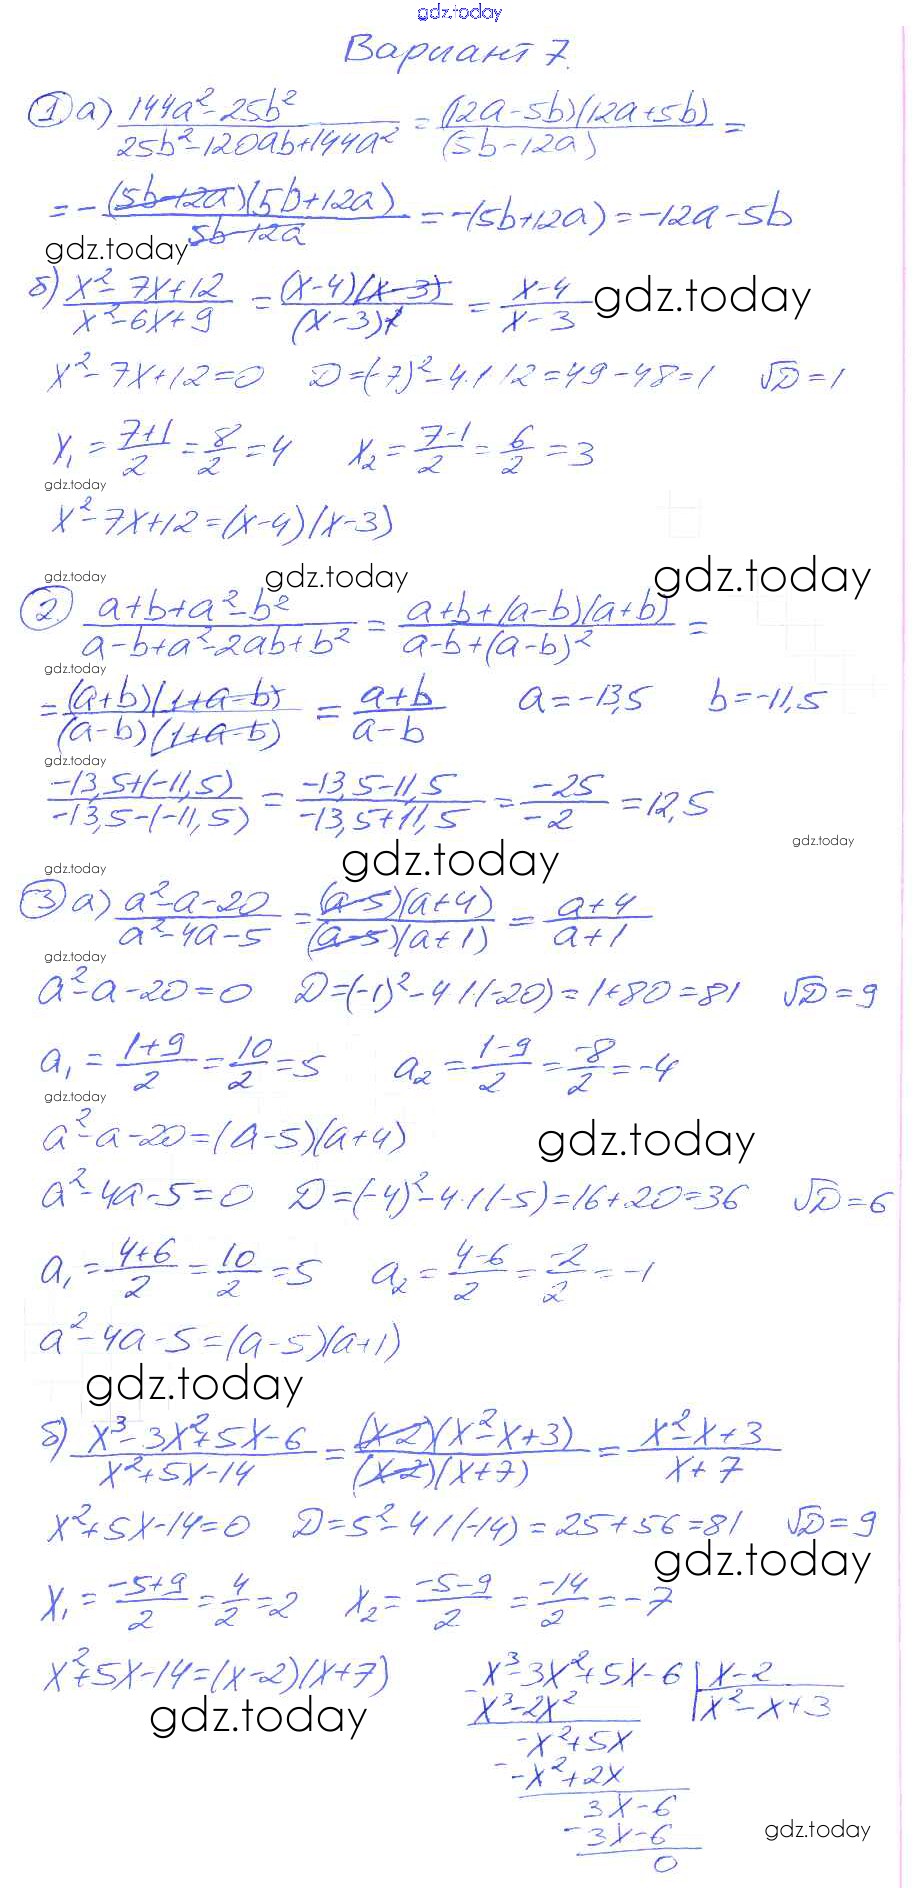 gdz.today
Вариант 7.
1 а) (144a² - 25b²)/(25b² - 120ab + 144a²) = ((12a - 5b)(12a + 5b))/(5b - 12a) =
= - ((5b - 12a)(5b + 12a))/(5b - 12a) = -(5b + 12a) = -12a - 5b
gdz.today
б) (x² - 7x + 12)/(x² - 6x + 9) = ((x - 4)(x - 3))/((x - 3)²) = (x - 4)/(x - 3) gdz.today
x² - 7x + 12 = 0 D = (-7)² - 4·1·12 = 49 - 48 = 1 √D = 1
x₁ = (7+1)/2 = 8/2 = 4 x₂ = (7-1)/2 = 6/2 = 3
gdz.today
x² - 7x + 12 = (x - 4)(x - 3)
gdz.today gdz.today gdz.today
2 (a + b + a² - b²)/(a - b + a² - 2ab + b²) = (a + b + (a - b)(a + b))/(a - b + (a - b)²) =
gdz.today
= ((a + b)(1 + a - b))/((a - b)(1 + a - b)) = (a + b)/(a - b) a = -13,5 b = -11,5
gdz.today
(-13,5 + (-11,5))/(-13,5 - (-11,5)) = (-13,5 - 11,5)/(-13,5 + 11,5) = -25/-2 = 12,5
gdz.today
gdz.today gdz.today
3 а) (a² - a - 20)/(a² - 4a - 5) = ((a - 5)(a + 4))/((a - 5)(a + 1)) = (a + 4)/(a + 1)
gdz.today
a² - a - 20 = 0 D = (-1)² - 4·1·(-20) = 1 + 80 = 81 √D = 9
a₁ = (1+9)/2 = 10/2 = 5 a₂ = (1-9)/2 = -8/2 = -4
gdz.today
a² - a - 20 = (a - 5)(a + 4) gdz.today
a² - 4a - 5 = 0 D = (-4)² - 4·1·(-5) = 16 + 20 = 36 √D = 6
a₁ = (4+6)/2 = 10/2 = 5 a₂ = (4-6)/2 = -2/2 = -1
a² - 4a - 5 = (a - 5)(a + 1)
gdz.today
б) (x³ - 3x² + 5x - 6)/(x² + 5x - 14) = ((x - 2)(x² - x + 3))/((x - 2)(x + 7)) = (x² - x + 3)/(x + 7)
x² + 5x - 14 = 0 D = 5² - 4·1·(-14) = 25 + 56 = 81 √D = 9
gdz.today
x₁ = (-5+9)/2 = 4/2 = 2 x₂ = (-5-9)/2 = -14/2 = -7
x² + 5x - 14 = (x - 2)(x + 7)
gdz.today
x³ - 3x² + 5x - 6 | x - 2
- x³ - 2x² | x² - x + 3
-x² + 5x
- -x² + 2x
3x - 6
- 3x - 6
0
gdz.today